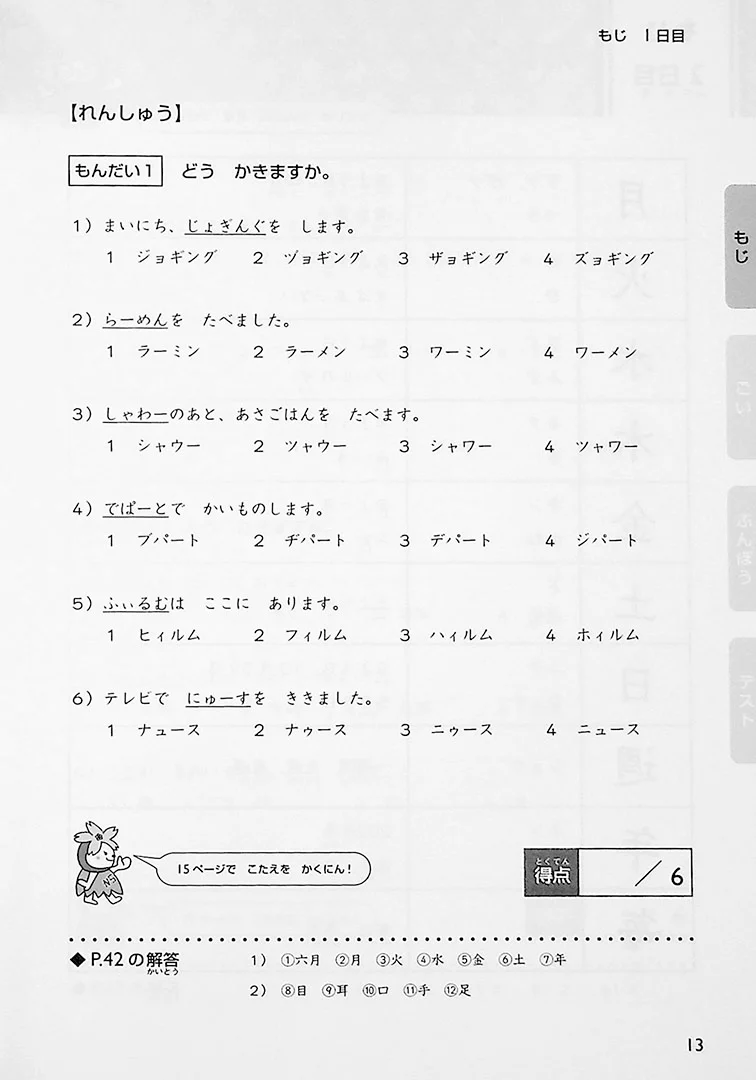 もじ 1日目
【れんしゅう】
もんだい1 どう かきますか。
1）まいにち、じょぎんぐを します。
1 ジョギング 2 ヅョギング 3 ザョギング 4 ズョギング
2）らーめんを たべました。
1 ラーミン 2 ラーメン 3 ワーミン 4 ワーメン
3）しゃわーのあと、あさごはんを たべます。
1 シャウー 2 ツャウー 3 シャワー 4 ツャワー
4）でぱーとで かいものします。
1 ブパート 2 ヂパート 3 デパート 4 ジパート
5）ふぃるむは ここに あります。
1 ヒィルム 2 フィルム 3 ハィルム 4 ホィルム
6）テレビで にゅーすを ききました。
1 ナュース 2 ナゥース 3 ニゥース 4 ニュース
もじ
ごい
ぶんぽう
テスト
N5
15ページで こたえを かくにん！
とくてん
得点 ／6
◆ P.42の解答 1） ①六月 ②月 ③火 ④水 ⑤金 ⑥土 ⑦年
かいとう
2） ⑧目 ⑨耳 ⑩口 ⑪手 ⑫足
13